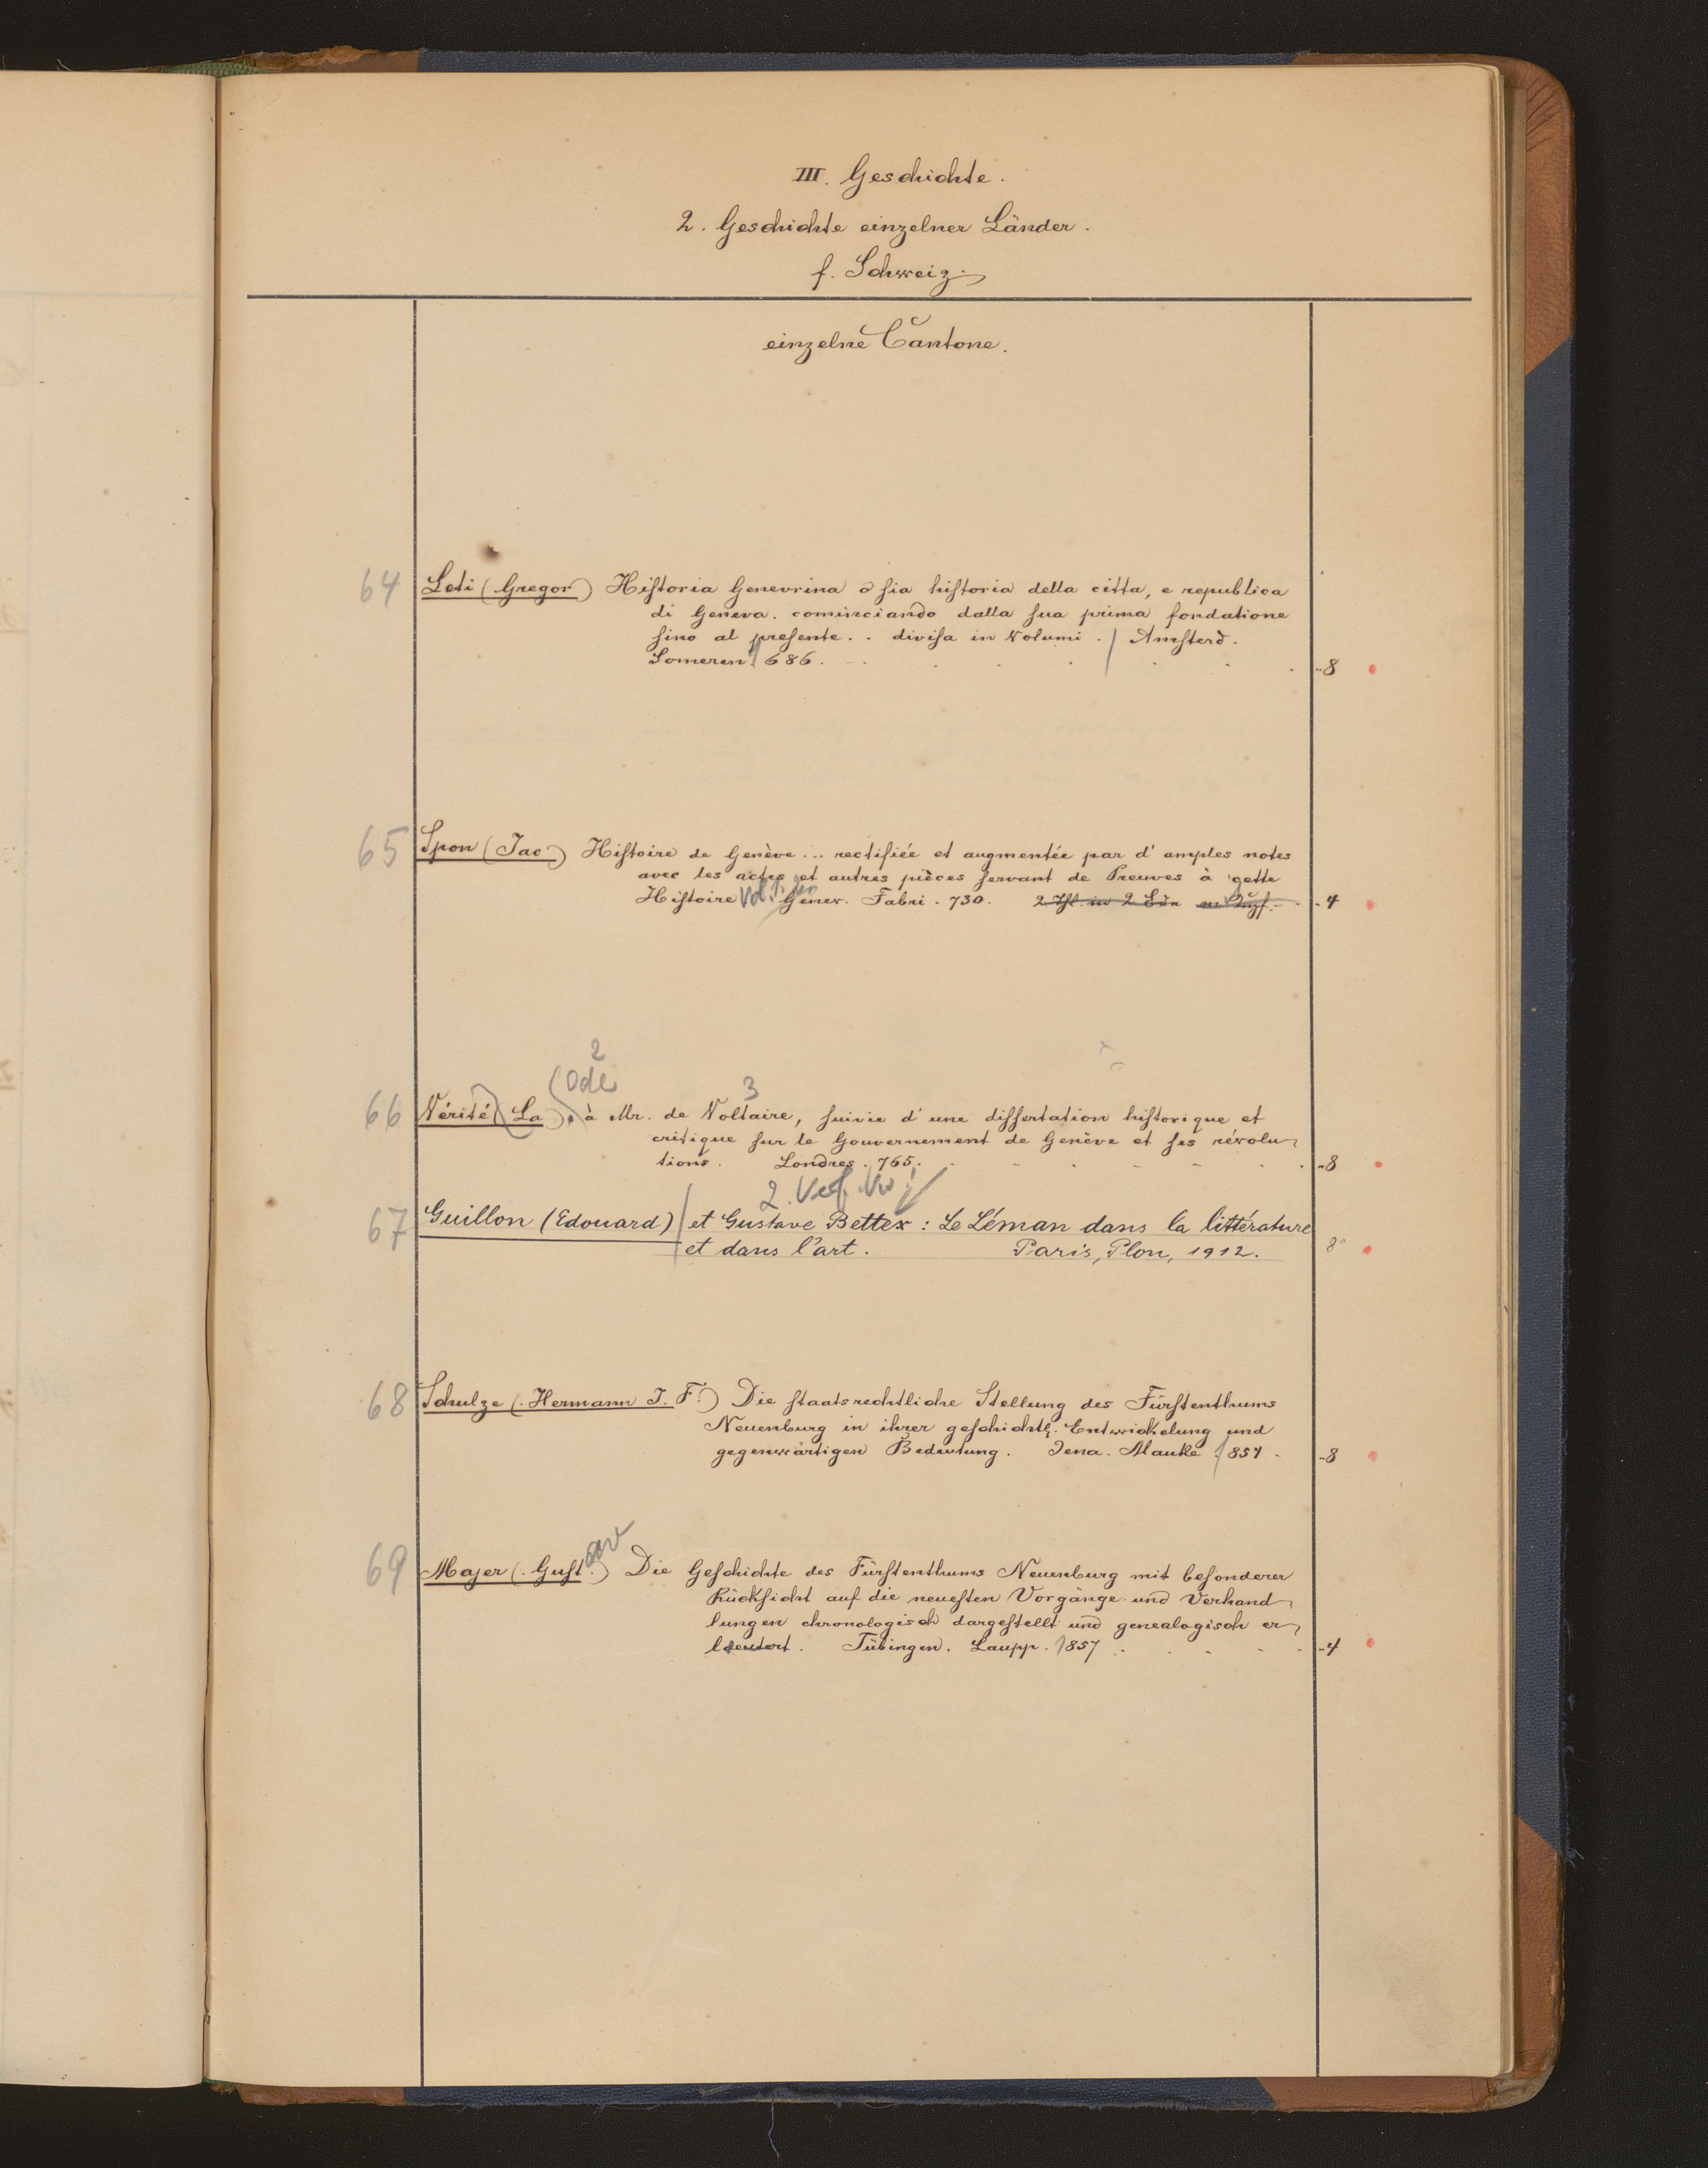 III. Geschichte.
2. Geschichte einzelner Länder.
f. Schweiz.
einzelne Cantone.
64 Leti (Gregor) Historia Genevrina o sia historia della citta, e republica
di Geneva. cominciando dalla sua prima fondatione
sino al presente. . divisa in Volumi. Amsterd.
Someren. 686. -8
65 Spon (Jac) Histoire de Genève... rectifiée et augmentée par d'amples notes
avec les actes et autres pièces servant de Preuves à cette
Histoire Vol. Genev. Fabri. 730. -4
2
(Ode
3
66 Vérité (La), à Mr. de Voltaire, suivie d'une dissertation historique et
critique sur le Gouvernement de Genève et ses révolu-
tions. Londres. 765. -8
2. Verf.
67 Guillon (Edouard) et Gustave Bettex: Le Léman dans la littérature
et dans l'art. Paris, Plon, 1912. 8°
68 Schulze (Hermann J. F.) Die staatsrechtliche Stellung des Fürstenthums
Neuenburg in ihrer geschichtl. Entwickelung und
gegenwärtigen Bedeutung. Jena. Mauke. 854 -8
69 Majer (Gust.) Die Geschichte des Fürstenthums Neuenburg mit besonderer
Rücksicht auf die neuesten Vorgänge und Verhand-
lungen chronologisch dargestellt und genealogisch er-
läutert. Tübingen. Laupp. 1857 -4